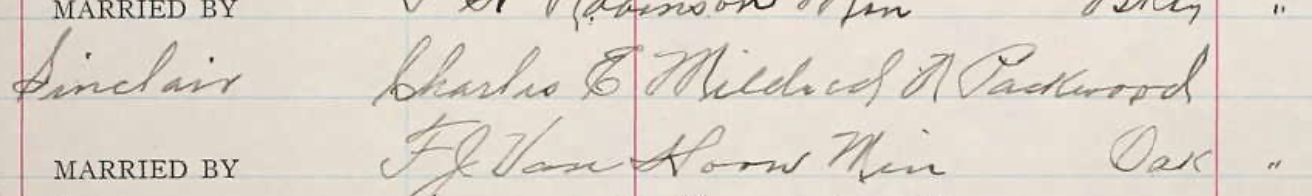 MARRIED BY Robinson Min Bkly "
Sinclair Charles E Mildred N Packwood
MARRIED BY F J Van Horn Min Oak "